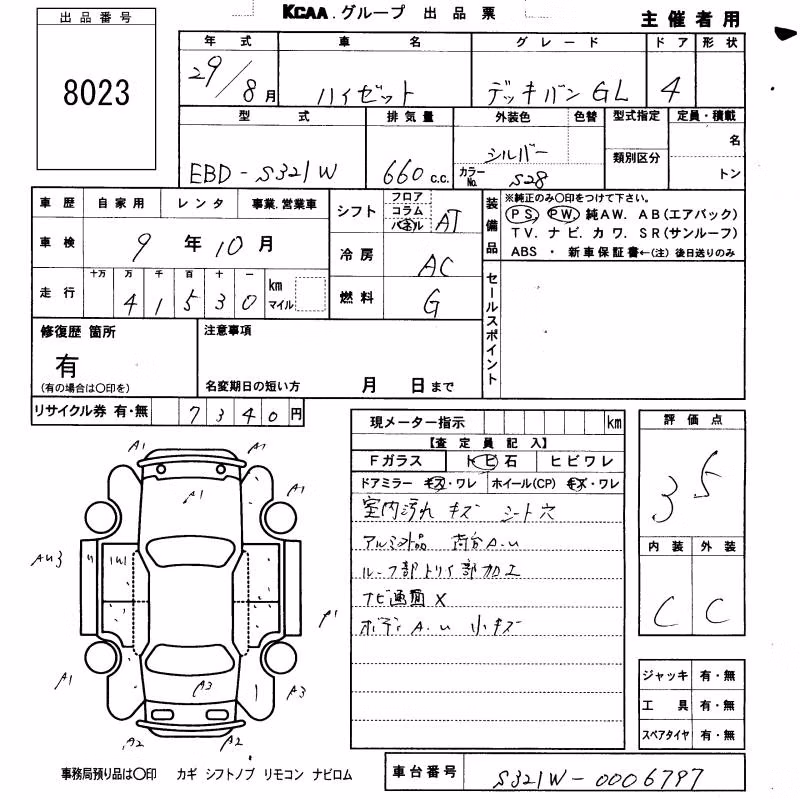 KCAA. グループ 出品票
主催者用
出品番号
8023
年式 車名 グレード ドア 形状
29/8月 ハイゼット デッキバン GL 4
型式 排気量 外装色 色替 型式指定 定員・積載
EBD-S321W 660 c.c. シルバー 類別区分 名
カラーNo. S28 トン
車歴 自家用 レンタ 事業.営業車
車検 9年10月
走行 十万 万 千 百 十 一
4 1 5 3 0 km マイル
シフト フロア コラム パネル AT
冷房 AC
燃料 G
装備品
※純正のみ〇印をつけて下さい。
PS. PW. 純AW. AB(エアバック)
TV. ナビ. カワ. SR(サンルーフ)
ABS ・ 新車保証書←(注) 後日送りのみ
セールスポイント
修復歴 箇所
有
(有の場合は〇印を)
注意事項
名変期日の短い方 月 日まで
リサイクル券 有・無 7340円
現メーター指示 km
【査定員記入】
Fガラス トビ石 ヒビワレ
ドアミラー キズ・ワレ ホイール(CP) キズ・ワレ
室内汚れ キズ シート穴
アルミ外品 荷台A.U
ルーフ部トリイ部加工
ナビ画面X
ボディA.U 小キズ
評価点
3.5
内装 外装
C C
A1 A1
A1 A1
AU3
A1
A1 A3 A3
A2 A2
ジャッキ 有・無
工具 有・無
スペアタイヤ 有・無
事務局預り品は〇印 カギ シフトノブ リモコン ナビロム
車台番号 S321W-0006797